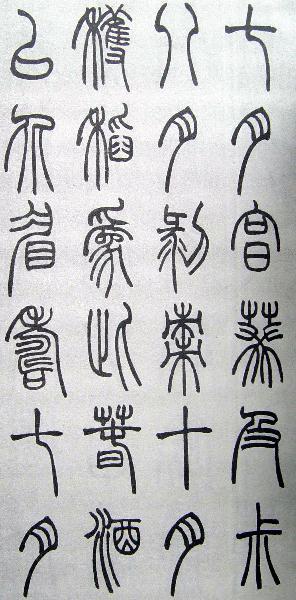 七月亯葵及尗
八月剝棗十月
穫稻爲此春酒
以介眉壽七月